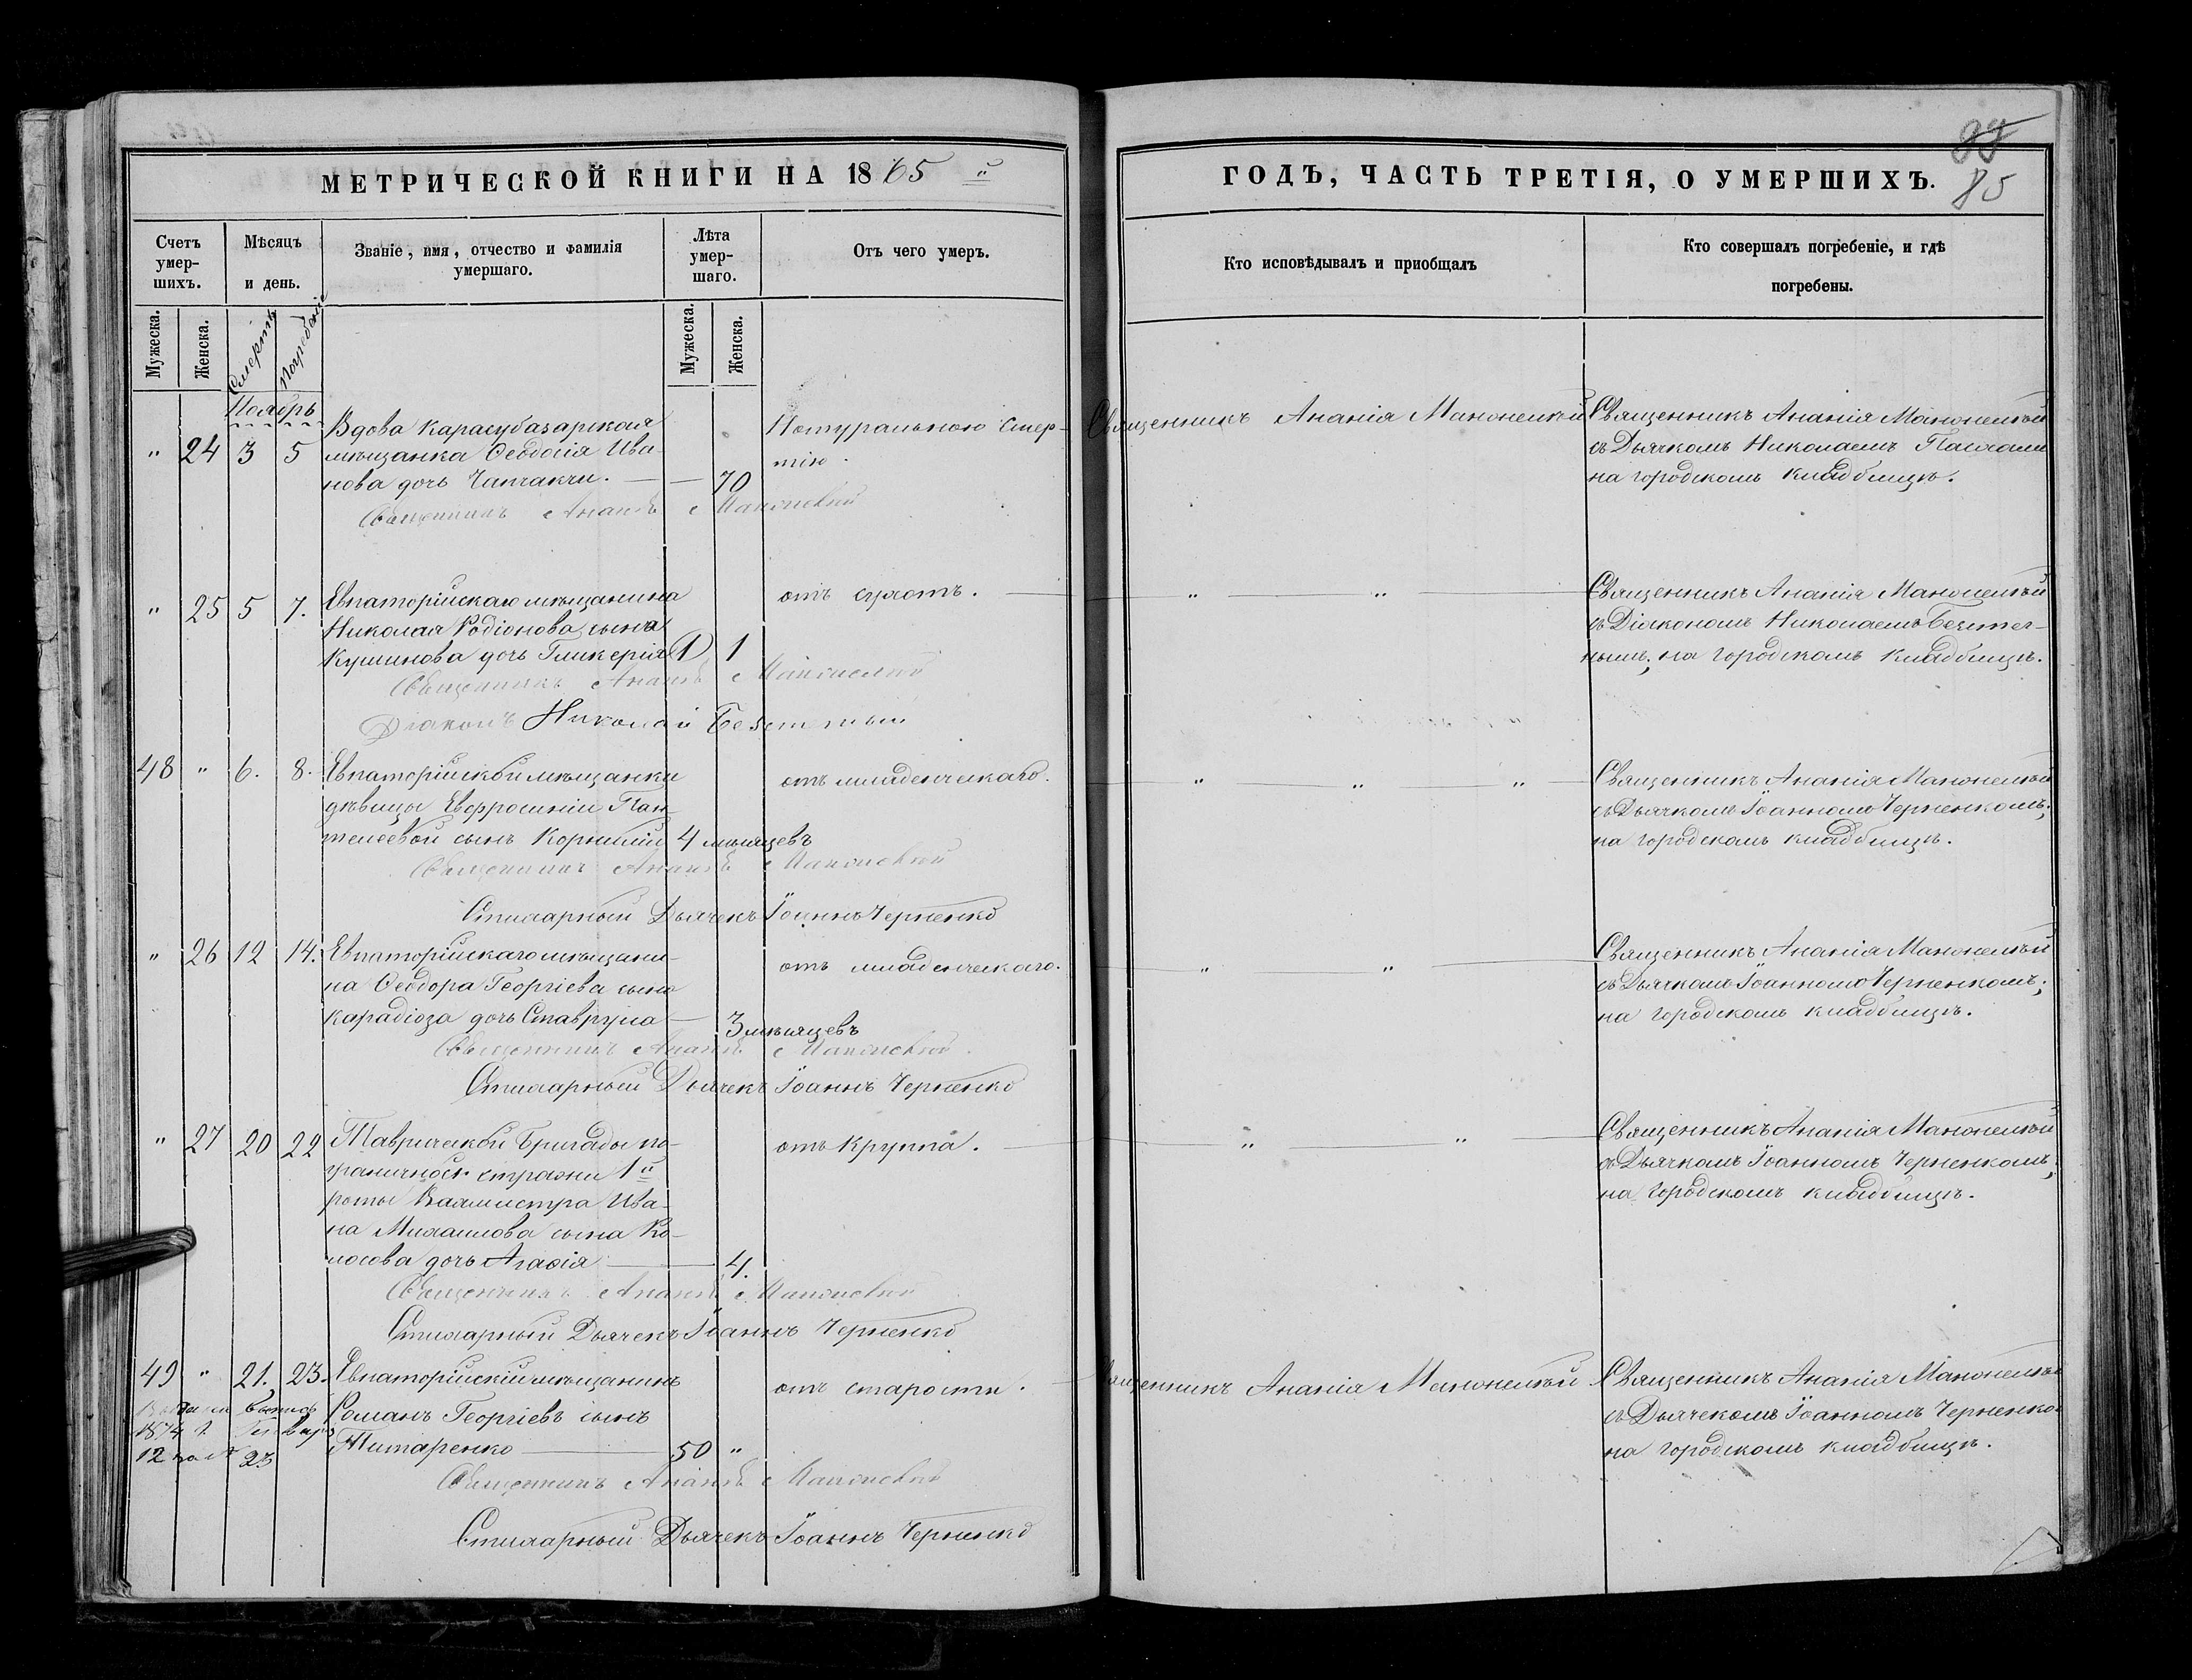 МЕТРИЧЕСКОЙ КНИГИ НА 1865 й
Счетъ умер-шихъ.
Мѣсяцъ и день.
Званіе, имя, отчество и фамилія умершаго.
Лѣта умер-шаго.
Отъ чего умеръ.
Мужеска.
Женска.
Смерть
Погребенія
Мужеска.
Женска.
Ноябрь
" 24 3 5
Вдова Карасубазарская
мѣщанка Ѳеодосія Ива-
нова дочь Чапчакчи. — — 70
Натуральною смер-
тію.
Священникъ Ананія
" 25 5 7.
Евпаторійскаго мѣщанина
Николая Родіонова сына
Кушинова дочь Гликерія (1) 1
отъ сухотъ.
Священникъ Ананія
Діаконъ Николай
48 " 6. 8.
Евпаторійской мѣщанки
дѣвицы Евфросиніи Пан-
телеевой сынъ Корнилій 4 мѣсяцевъ
отъ младенческаго.
Священникъ Ананія
Стихарный Дьячекъ Іоаннъ Черненко
" 26 12 14.
Евпаторійскаго мѣщани-
на Ѳеодора Георгіева сына
Карадіоза дочь Ставрула — 3 мѣсяцевъ
отъ младенческаго.
Священникъ Ананія
Стихарный Дьячекъ Іоаннъ Черненко
" 27 20 22
Таврической бригады по-
граничной стражи 1й
роты Вахмистра Ива-
на Михаилова сына Ко-
лосова дочь Агафія — 4.
отъ Круппа.
Священникъ Ананія
Стихарный Дьячекъ Іоаннъ Черненко
49 " 21. 23.
Евпаторійскій мѣщанинъ
Романъ Георгіевъ сынъ
Титаренко — 50 "
отъ старости.
1874 г. Генваря
12 за № 23
Священникъ Ананія
Стихарный Дьячекъ Іоаннъ Черненко
ГОДЪ, ЧАСТЬ ТРЕТІЯ, О УМЕРШИХЪ.
85
Кто исповѣдывалъ и приобщалъ
Кто совершалъ погребеніе, и гдѣ
погребены.
Священникъ Ананія
Священникъ Ананія
съ Дьячкомъ Николаемъ
на городскомъ кладбищѣ.
" "
Священникъ Ананія
съ Діакономъ Николаемъ
на городскомъ кладбищѣ.
" " "
Священникъ Ананія
съ Дьячкомъ Іоанномъ Черненкомъ;
на городскомъ кладбищѣ.
" "
Священникъ Ананія
съ Дьячкомъ Іоанномъ Черненкомъ;
на городскомъ кладбищѣ.
" "
Священникъ Ананія
съ Дьячкомъ Іоанномъ Черненкомъ;
на городскомъ кладбищѣ.
Священникъ Ананія
Священникъ Ананія
съ Дьячекомъ Іоанномъ Черненко
на городскомъ кладбищѣ.